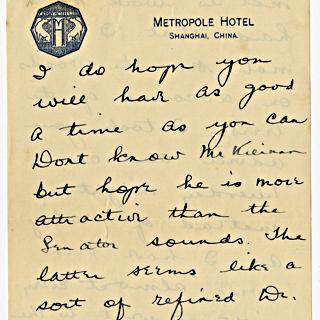 METROPOLE HOTEL
SHANGHAI, CHINA.
I do hope you
will have as good
a time as you can
Dont know Mr Kiernan
but hope he is more
attractive than the
Senator sounds. The
latter seems like a
sort of refined Dr.